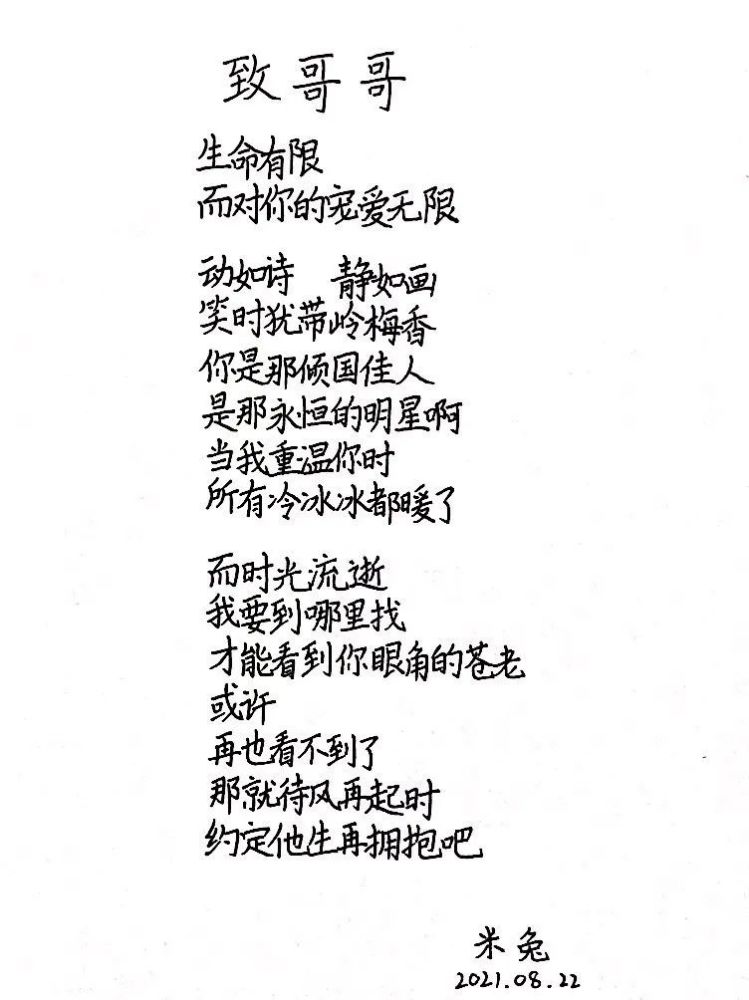 致哥哥
生命有限
而对你的宠爱无限
动如诗 静如画
笑时犹带岭梅香
你是那倾国佳人
是那永恒的明星啊
当我重温你时
所有冷冰冰都暖了
而时光流逝
我要到哪里找
才能看到你眼角的苍老
或许
再也看不到了
那就待风再起时
约定他生再拥抱吧
米兔
2021.08.22